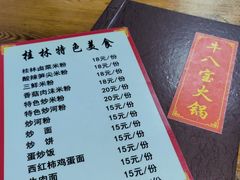 桂林特色美食
桂林卤菜米粉 18元/份
酸辣笋尖米粉 18元/份
三鲜米粉 18元/份
香菇肉沫米粉 20元/份
特色炒米粉 20元/份
特色炒河粉 15元/份
炒河粉 15元/份
炒面 15元/份
炒饼 15元/份
蛋炒饭 15元/份
西红柿鸡蛋面 15元/份
牛肉面
牛八宝火锅